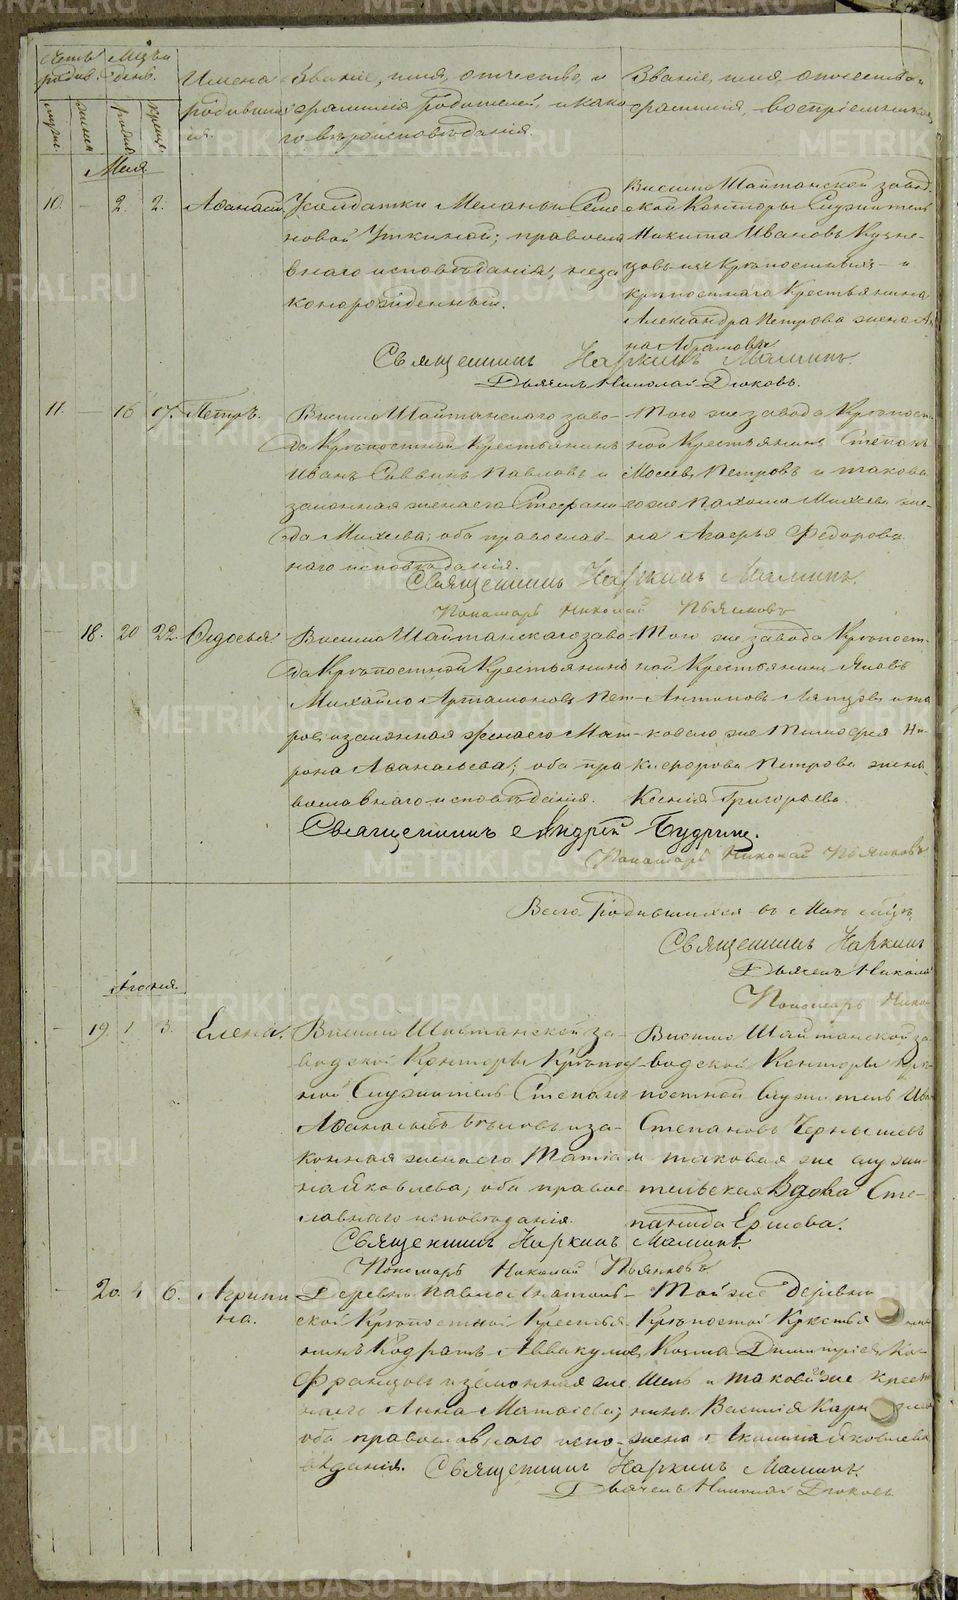 METRIKI.GASO-URAL.RU
Счетъ родив. Мѣсяцъ и день.
Имена родившихся.
Званіе, имя, отчество, и фамилія родителей, и какого вѣроисповѣданія.
Званіе, имя, отчество и фамилія воспріемниковъ
Мая
10. — 2. 2. Аѳанасій
Солдатки Меланьи Семе
новой Уткиной; правосла
внаго исповѣданія, неза
коннорожденный.
Висимо Шайтанской завод
ской Конторы Служитель
Никита Ивановъ Кузне-
цовъ изъ Крѣпостныхъ и
крѣпостнаго Крестьянина
Александра Петрова жена А
на Абрамова
Священникъ Наркисъ Маминъ.
Дьячекъ Николай Дюковъ.
11. — 16 17. Петръ.
Висимо Шайтанскаго заво-
да Крѣпостный Крестьянинъ
Иванъ Саввинъ Павловъ и
законная жена его Стефани-
да Михеева; оба православ-
наго исповѣданія.
Того же завода Крѣпост-
ной Крестьянинъ Степанъ
Петровъ и такова
го же Пахома Михеева же-
на Агафья Федорова.
Священникъ Наркисъ Маминъ.
Пономарь Николай Пьянковъ
— 18. 20 22. Ѳедосья
Висимо Шайтанскаго заво-
да Крѣпостной Крестьянинъ
Михайло Артамоновъ Пет-
ровъ и законная жена его Мат-
рона Аѳанасьева; оба пра
вославнаго исповѣданія.
Того же завода Крѣпост-
ной Крестьянинъ Яковъ
Антиповъ и та
коваго же Тимофея Ни-
кифорова Петрова жена
Ксенія Григорьева.
Священникъ Андрей Будринъ.
Пономарь Николай Пьянковъ
Всего Родившихся въ Маѣ мцѣ
Священникъ Наркисъ
Дьячекъ Никола
Пономарь Нико
Іюня.
— 19. 1 3. Елена.
Висимо Шайтанской за-
водской Конторы Крѣпост-
ной Служитель Степанъ
Аѳанасьевъ Бѣловъ и за-
конная жена его Матрё
на Яковлева; оба право-
славнаго исповѣданія.
Висимо Шайтанской за
водской Конторы Крѣ-
постной Служитель Ива
Степановъ Чернышевъ
и таковая же служи-
тельская Вдова Сте-
панида Ершова.
Священникъ Наркисъ Маминъ.
Пономарь Николай Пьянковъ
— 20. 4 6. Агрипи
на.
Деревни Павлоанатоль-
ской Крѣпостной Крестья-
нинъ Кодратъ Аввакумовъ
Французовъ и законная же
на его Анна Матвѣева;
оба православнаго испо-
вѣданія.
Той же деревни
Крѣпостной Крестья
Козма Димитріевъ Ко-
шель и таковаго же крест
нина Василія
жена Акилина Яковлева
Священникъ Наркисъ Маминъ.
Дьячекъ Николай Дюковъ